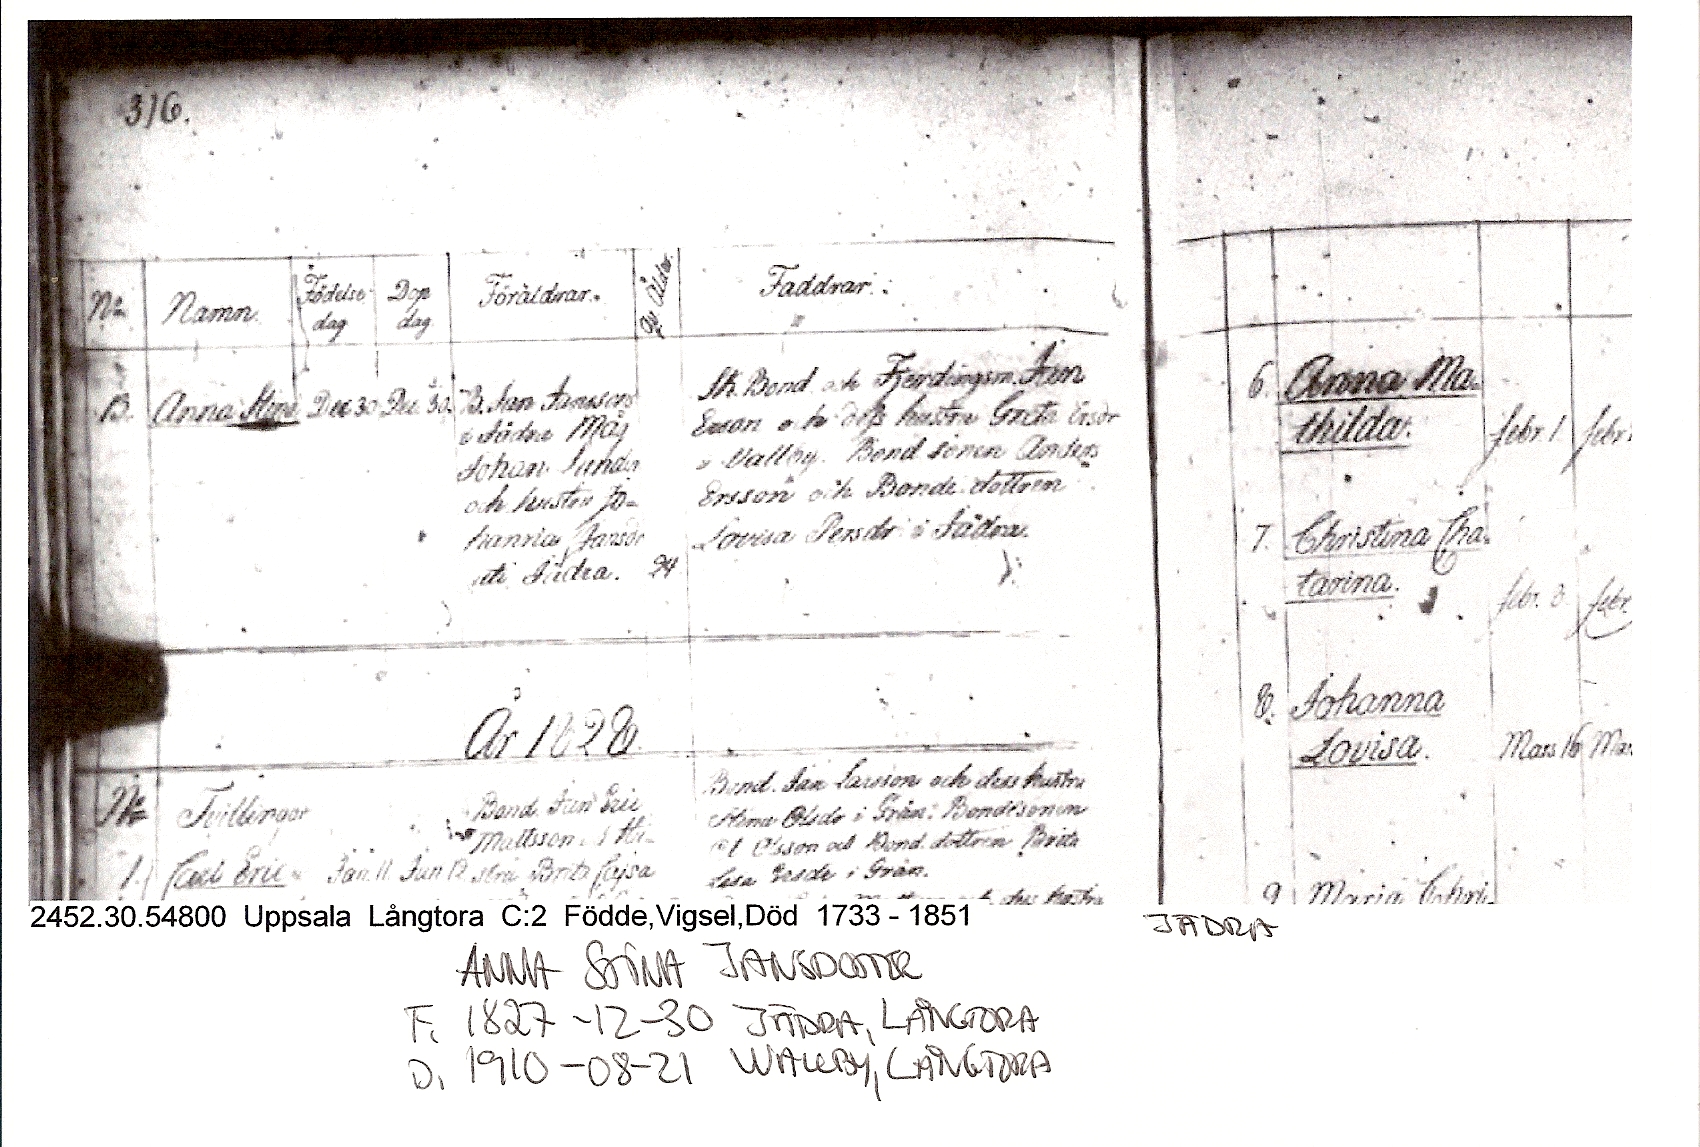 316.
No Namn. Födelse dag Dop dag Föräldrar. Ålder. Faddrar.
13. Anna Stina Dec 30 Dec 30. B. Jan Jansson
i Jädra Måg
Johan
och hustru Jo-
hanna Jansdr
i Jädra. 24
Bond. och Fjerdingsm. Jan
Ersson och dess hustru Greta Ersdr
i Vallby. Bondsonen Anders
Ersson och Bonde dottren
Lovisa Persdr i Jädra.
År 1828
No Tvillingar
1. Carl Eric Jan 11 Jan 12
Bond. Jan Eric
Mattsson Hu-
stru Brita Cajsa
Bond. Jan Larsson och dess hustru
Stina Olsdr i Grän. Bondesonen
Olsson och Bond. dottren Brita
Lisa Ersdr i Grän.
och dess hustru
6. Anna Ma-
thilda. febr. 1. febr.
7. Christina Cha-
tarina. febr. 3 febr.
8. Johanna
Lovisa. Mars 16 Mar
9 Maria Chri
2452.30.54800 Uppsala Långtora C:2 Födde,Vigsel,Död 1733 - 1851
JÄDRA
ANNA STINA JANSDOTTER
F. 1827-12-30 JÄDRA, LÅNGTORA
D. 1910-08-21 WALLBY, LÅNGTORA